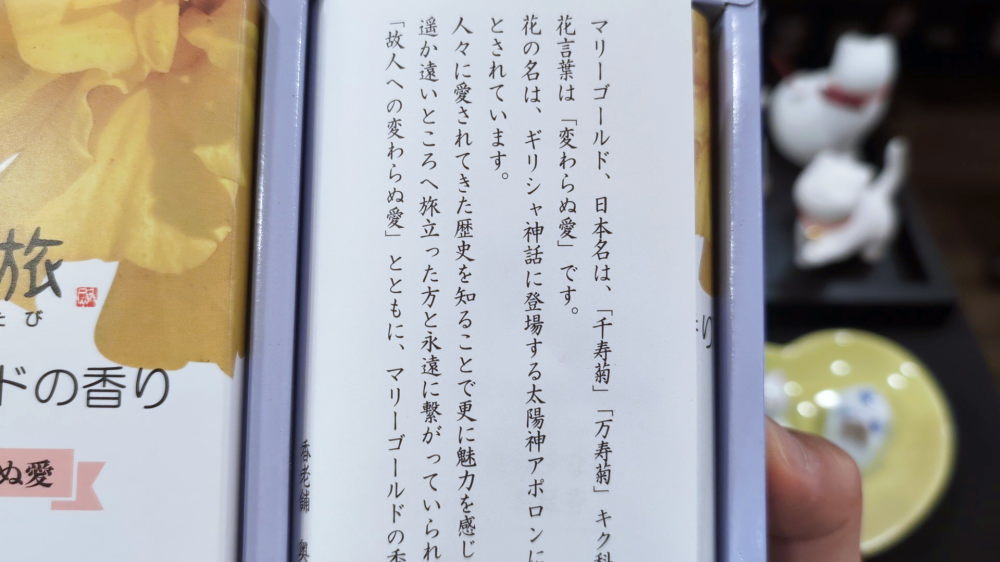 マリーゴールド、日本名は、「千寿菊」「万寿菊」キク科
花言葉は「変わらぬ愛」です。
花の名は、ギリシャ神話に登場する太陽神アポロンに
とされています。
人々に愛されてきた歴史を知ることで更に魅力を感じ
遥か遠いところへ旅立った方と永遠に繋がっていられ
「故人への変わらぬ愛」とともに、マリーゴールドの香
香老舗 奥
旅
たび
ドの香り
ぬ愛
り